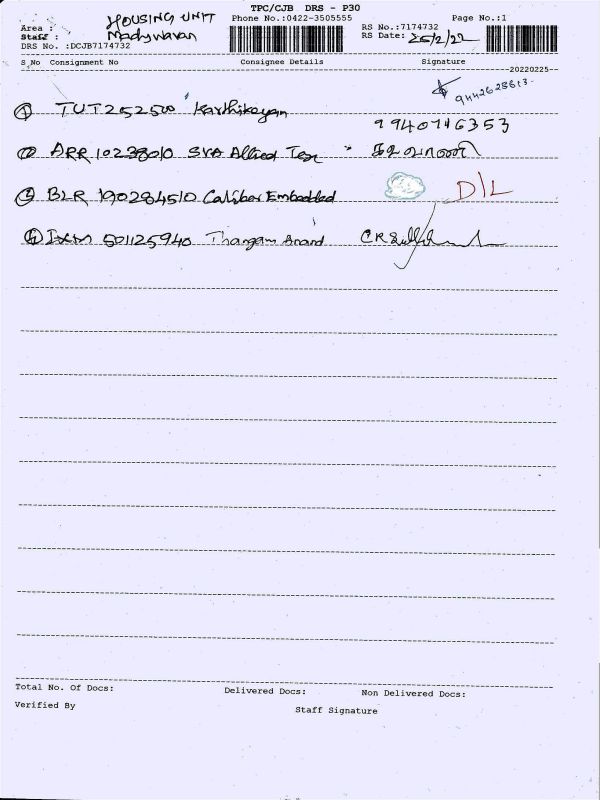 TPC/CJB DRS - P30
Area : HOUSING UNIT Phone No.:0422-3505555 RS No.:7174732 Page No.:1
Staff : Madhuvanan RS Date: 25/2/22
DRS No. :DCJB7174732
S No Consignment No Consignee Details Signature
20220225
9442628613
① TUT252500 Karthikeyan 9940746353
② ARR 10238010 SVA Allied Tex கலைவாணி
③ BLR 190284510 Caliber Embedded D/L
④ IXM 501125940 Thangam Anand
Total No. Of Docs: Delivered Docs: Non Delivered Docs:
Verified By Staff Signature